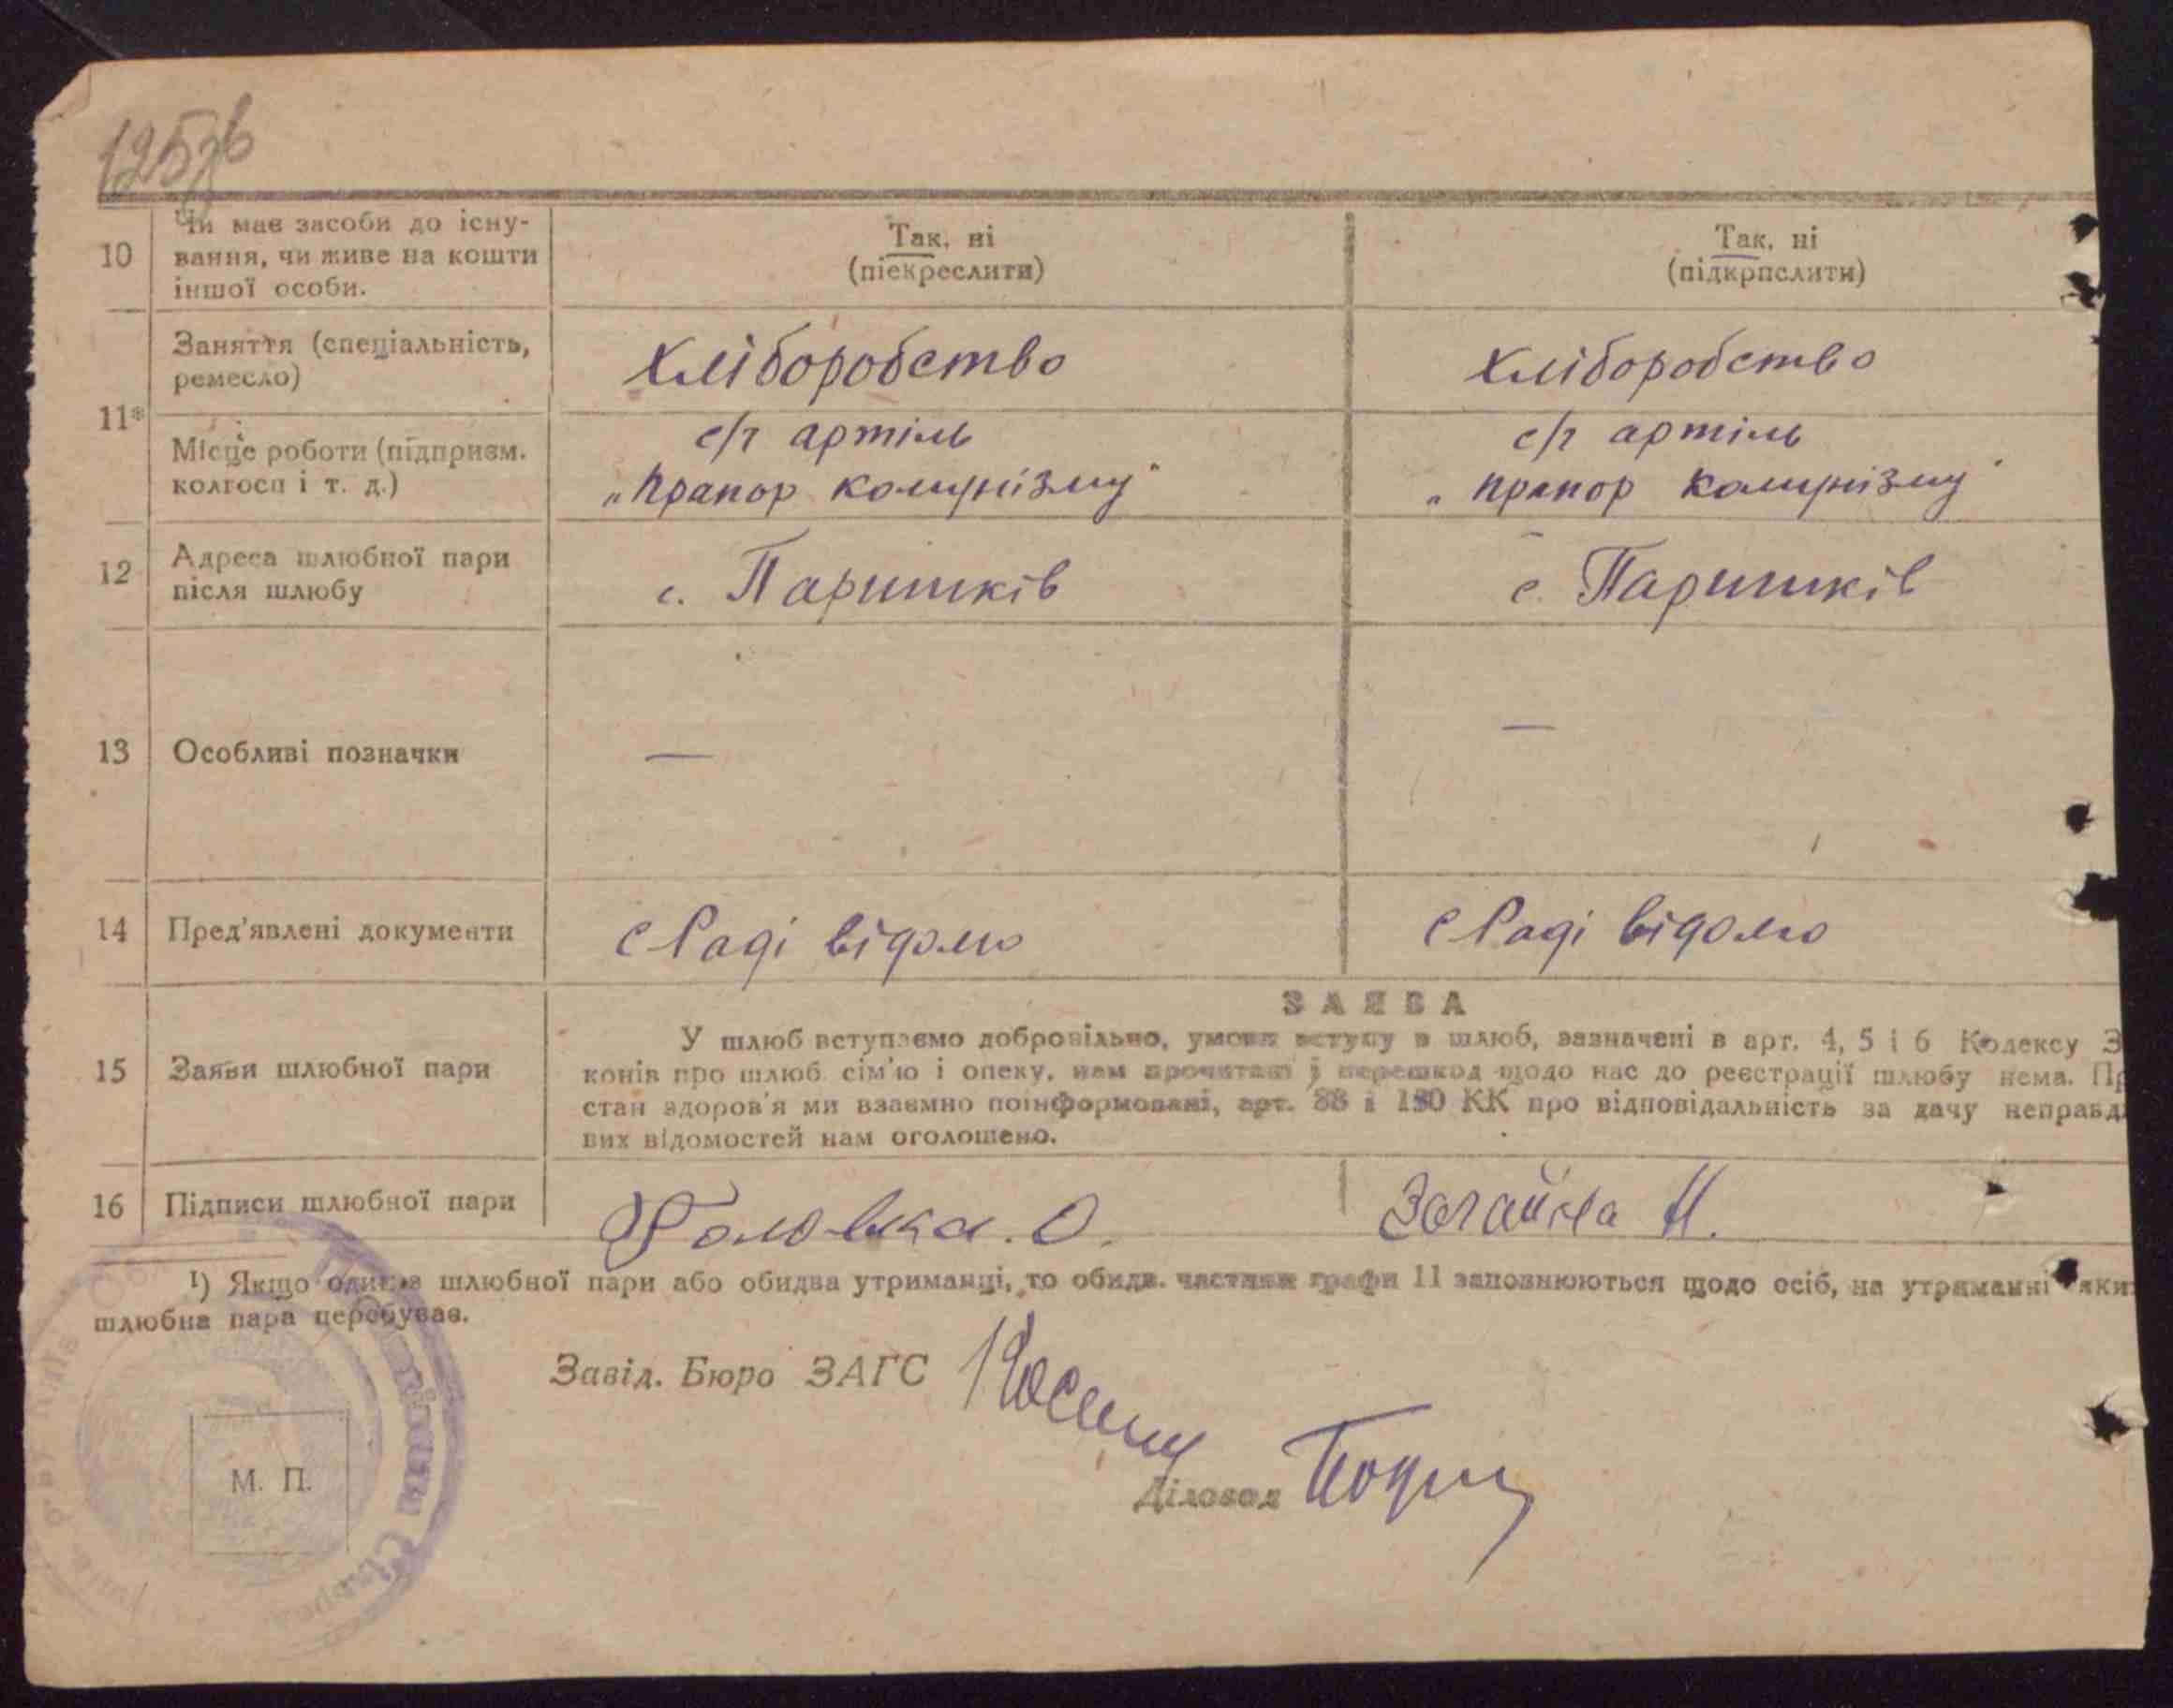 125зв
10 Чи має засоби до існу-
вання, чи живе на кошти
іншої особи.
Так, ні
(піекреслити)
Так, ні
(підкрпслити)
11*
Заняття (спеціальність,
ремесло)
Хліборобство
Хліборобство
Місце роботи (підприєм.
колгосп і т. д.)
с/г артіль
„Прапор комунізму"
с/г артіль
„Прапор комунізму"
12 Адреса шлюбної пари
після шлюбу
с. Паришків
с. Паришків
13 Особливі позначки
—
—
14 Пред'явлені документи
С Раді відомо
С Раді відомо
15 Заяви шлюбної пари
ЗАЯВА
У шлюб вступаємо добровільно, умови вступу в шлюб, зазначені в арт. 4, 5 і 6 Кодексу З
конів про шлюб сім'ю і опеку, нам прочитані і перешкод щодо нас до реєстрації шлюбу нема. Пр
стан здоров'я ми взаємно поінформовані, арт. 88 і 190 КК про відповідальність за дачу неправд
вих відомостей нам оголошено.
16 Підписи шлюбної пари
Головка. О.
Загайна Н.
¹) Якщо один з шлюбної пари або обидва утриманці, то обидв. частини графи 11 заповнюються щодо осіб, на утриманні яки
шлюбна пара перебуває.
Завід. Бюро ЗАГС
Діловод
М. П.